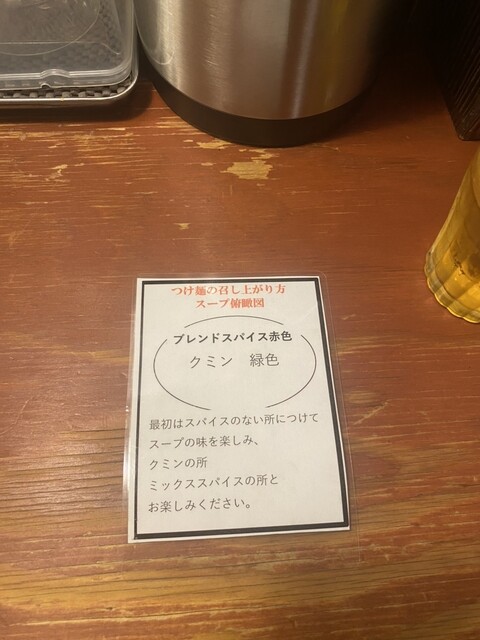 つけ麺の召し上がり方
スープ俯瞰図
ブレンドスパイス赤色
クミン　緑色
最初はスパイスのない所につけて
スープの味を楽しみ、
クミンの所
ミックススパイスの所と
お楽しみください。